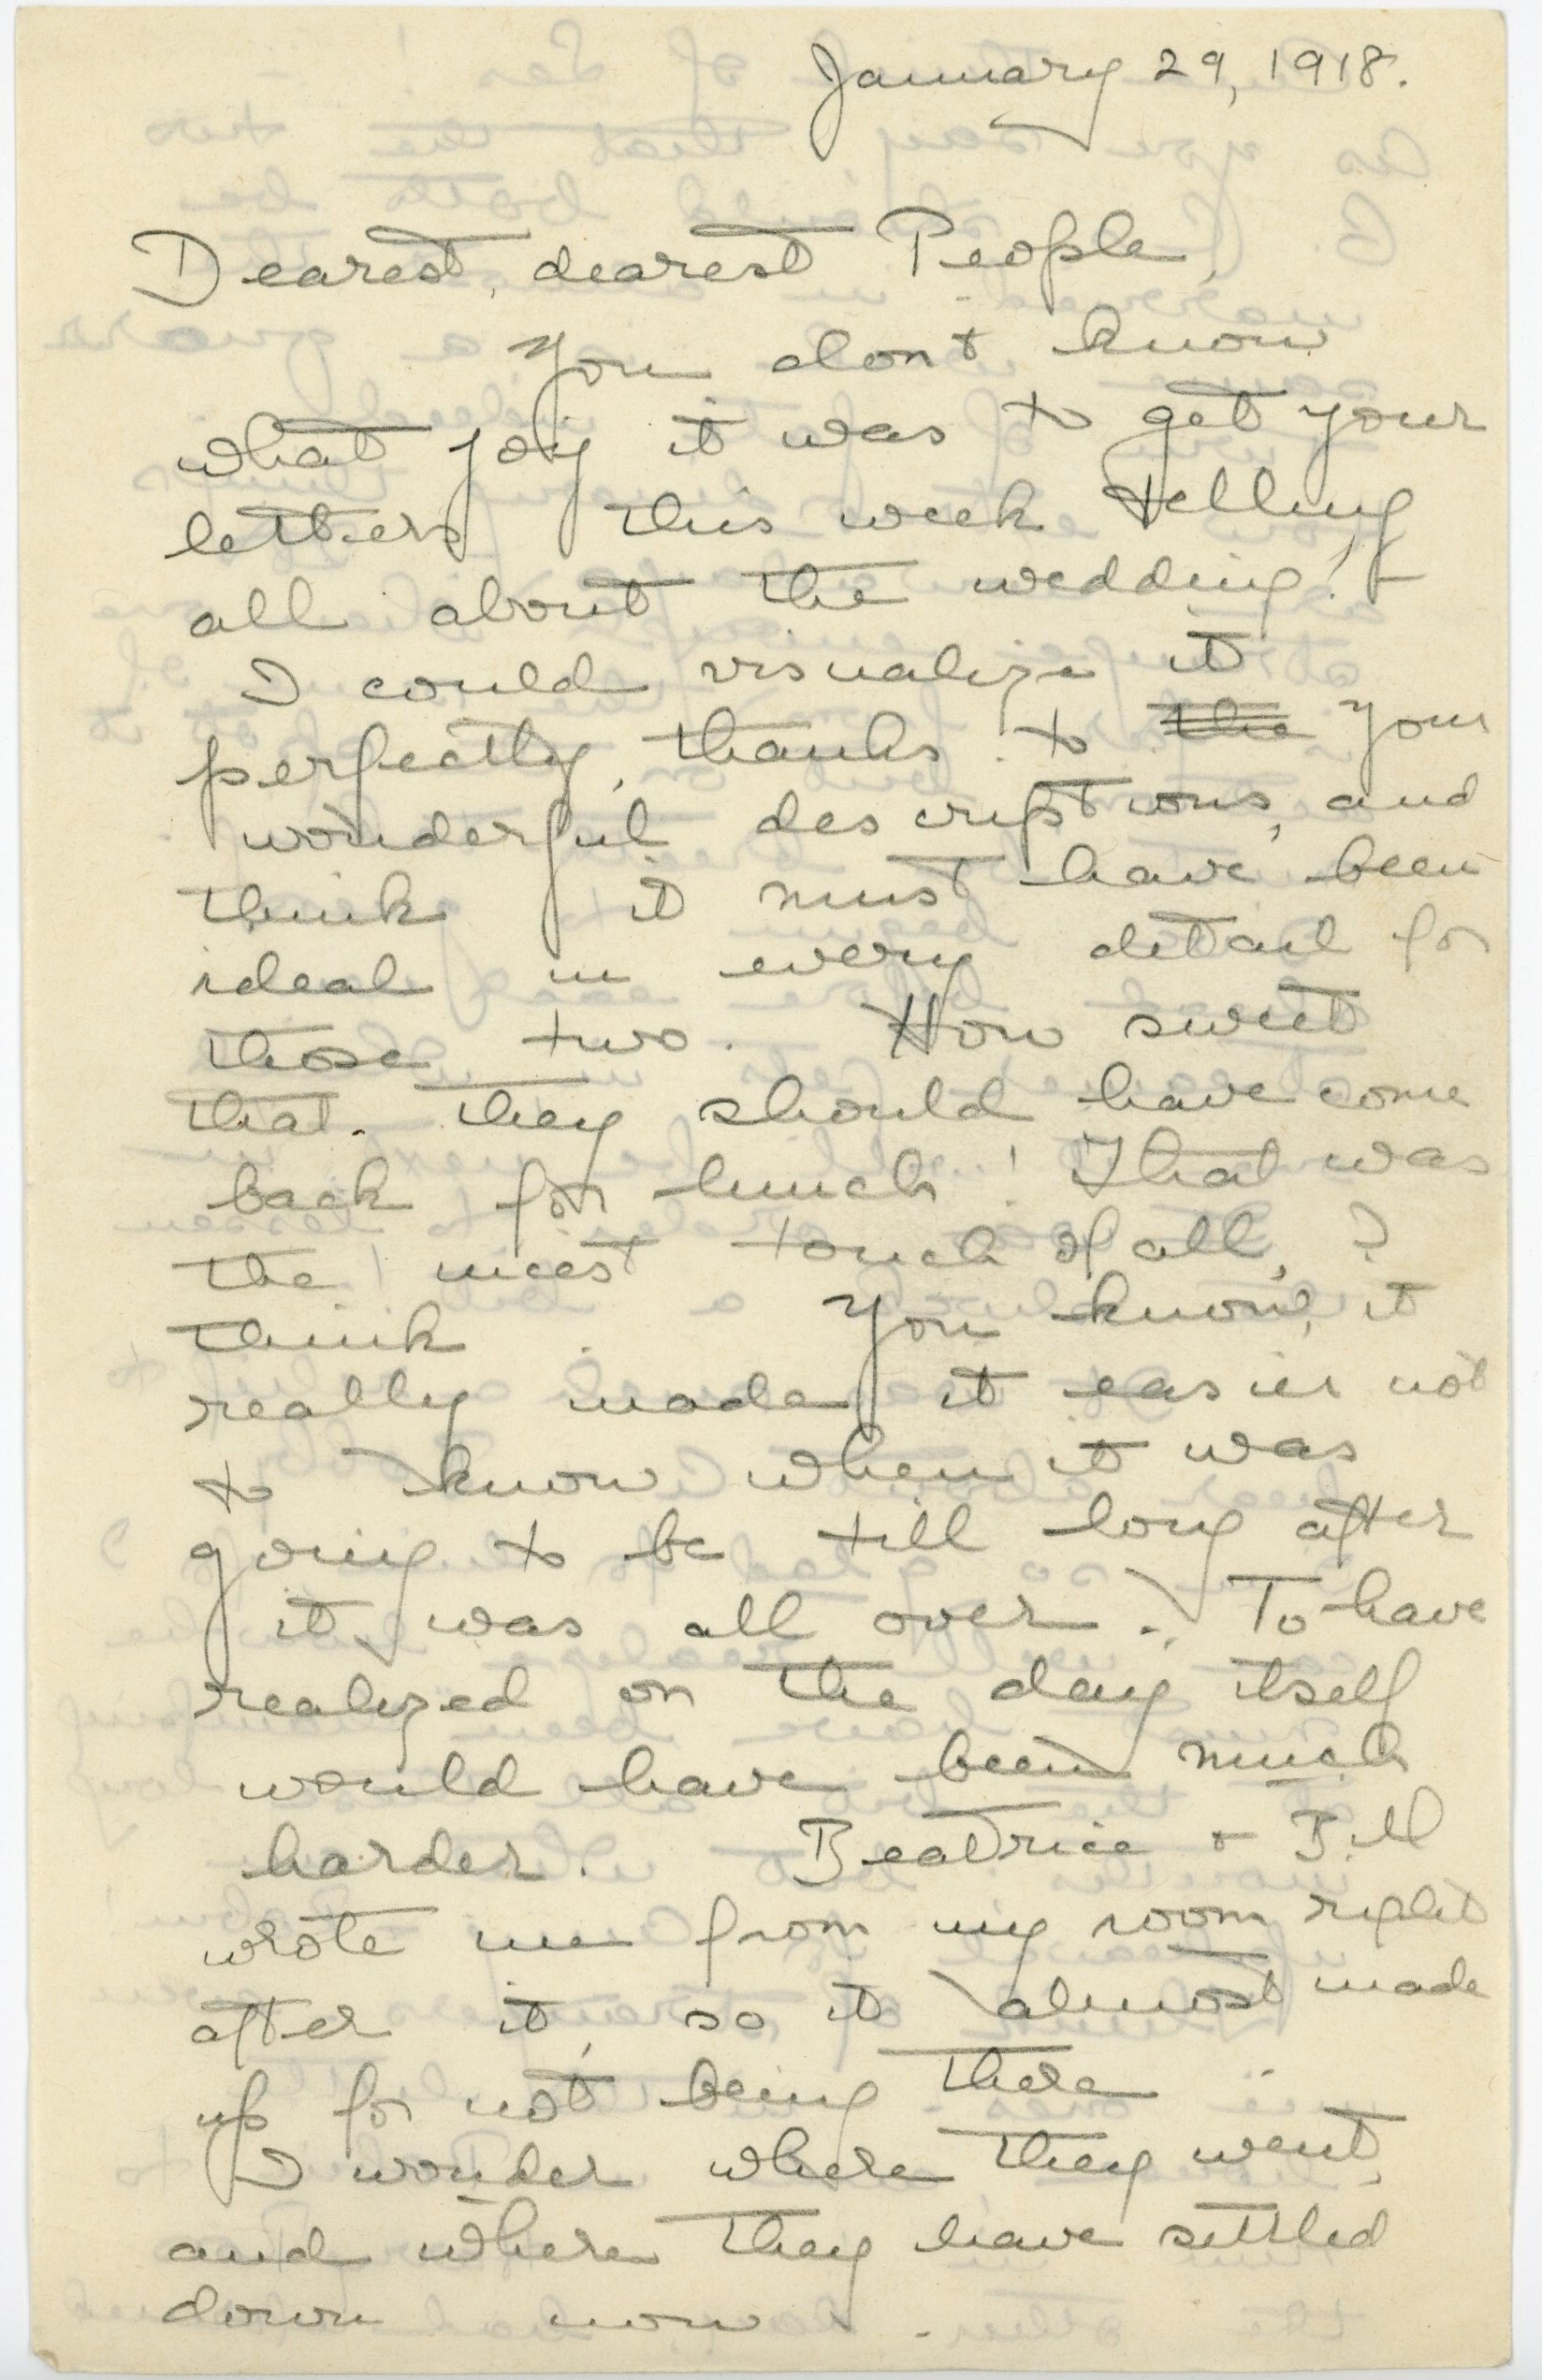 January 29, 1918.
Dearest, dearest People,
You don't know
what joy it was to get your
letters this week telling
all about the wedding! –
I could visualize it
perfectly, thanks to ~~the~~ your
wonderful descriptions, and
think it must have been
ideal in every detail for
those two. How sweet
that they should have come
back for lunch! That was
the nicest touch of all, I
think. You know, it
really made it easier not
to know when it was
going to be till long after
it was all over. To have
realized on the day itself
would have been much
harder. Beatrice + Bill
wrote me from my room right
after it, so it almost made
up for not being there.
I wonder where they went,
and where they have settled
down now.